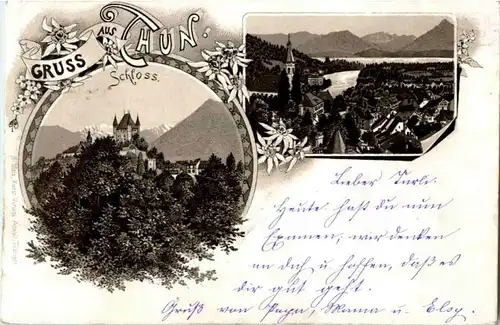 GRUSS AUS THUN.
Schloss.
Lieber
Heute hast du nun
Examen, wir denken
an dich u. hoffen, daß es
dir gut geht.
Gruß von Papa, Mama u.